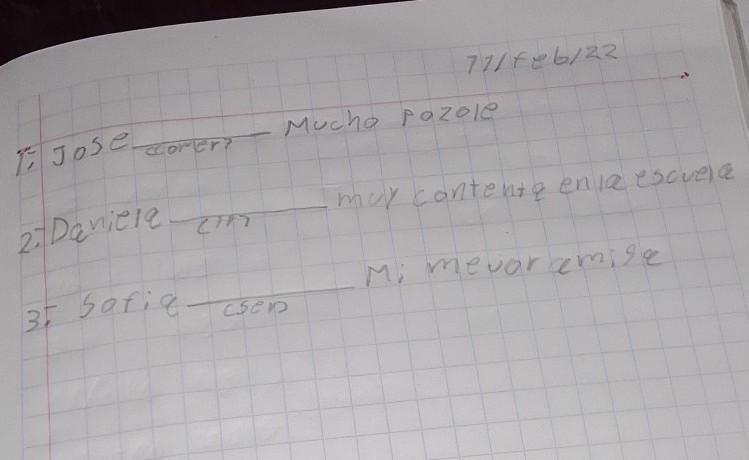 11/feb/22
1: Jose ______ Mucho pozole
(comer)
2: Daniela ______ muy contenta en la escuela
(ir)
3: Sofia ______ Mi mevor amiga
(ser)